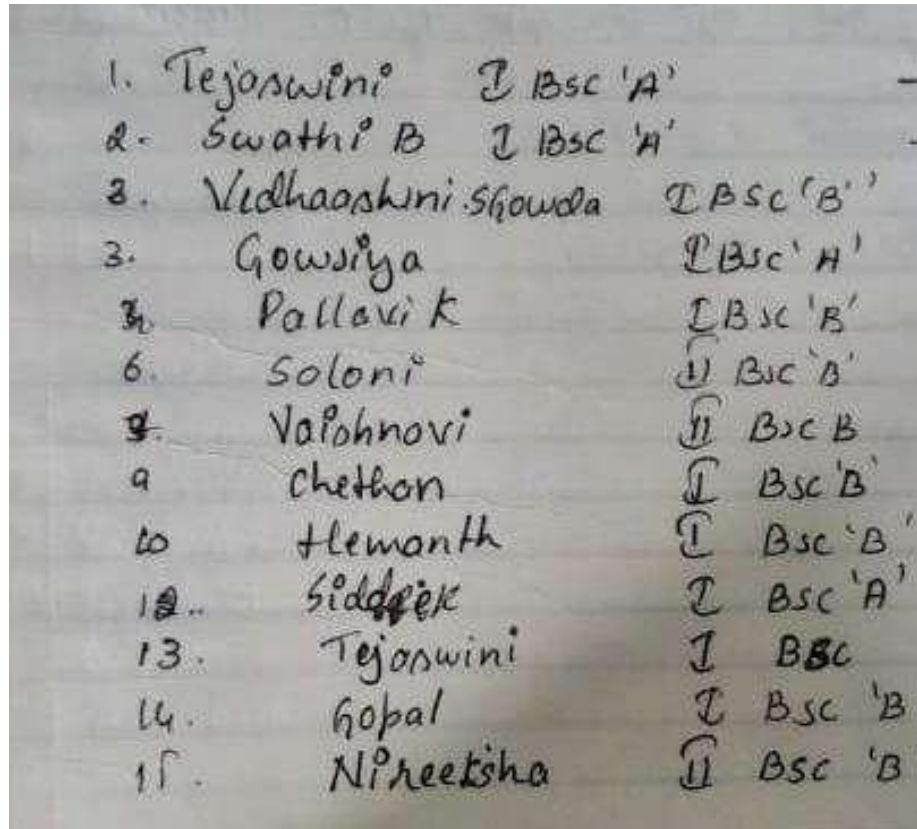 1. Tejaswini I BSC 'A'
2. Swathi B I BSC 'A'
3. Vedhaashini SGowda I BSC 'B'
3. Gowsiya I BSC 'A'
Pallavi K I BSC 'B'
6. Saloni II BSC 'B'
Vaishnavi II BSC B
9 Chethan I BSC 'B'
10 Hemanth I BSC 'B'
12.. I BSC 'A'
13. Tejaswini I BSC
14. Gopal I BSC 'B
15. Nireeksha II BSC 'B